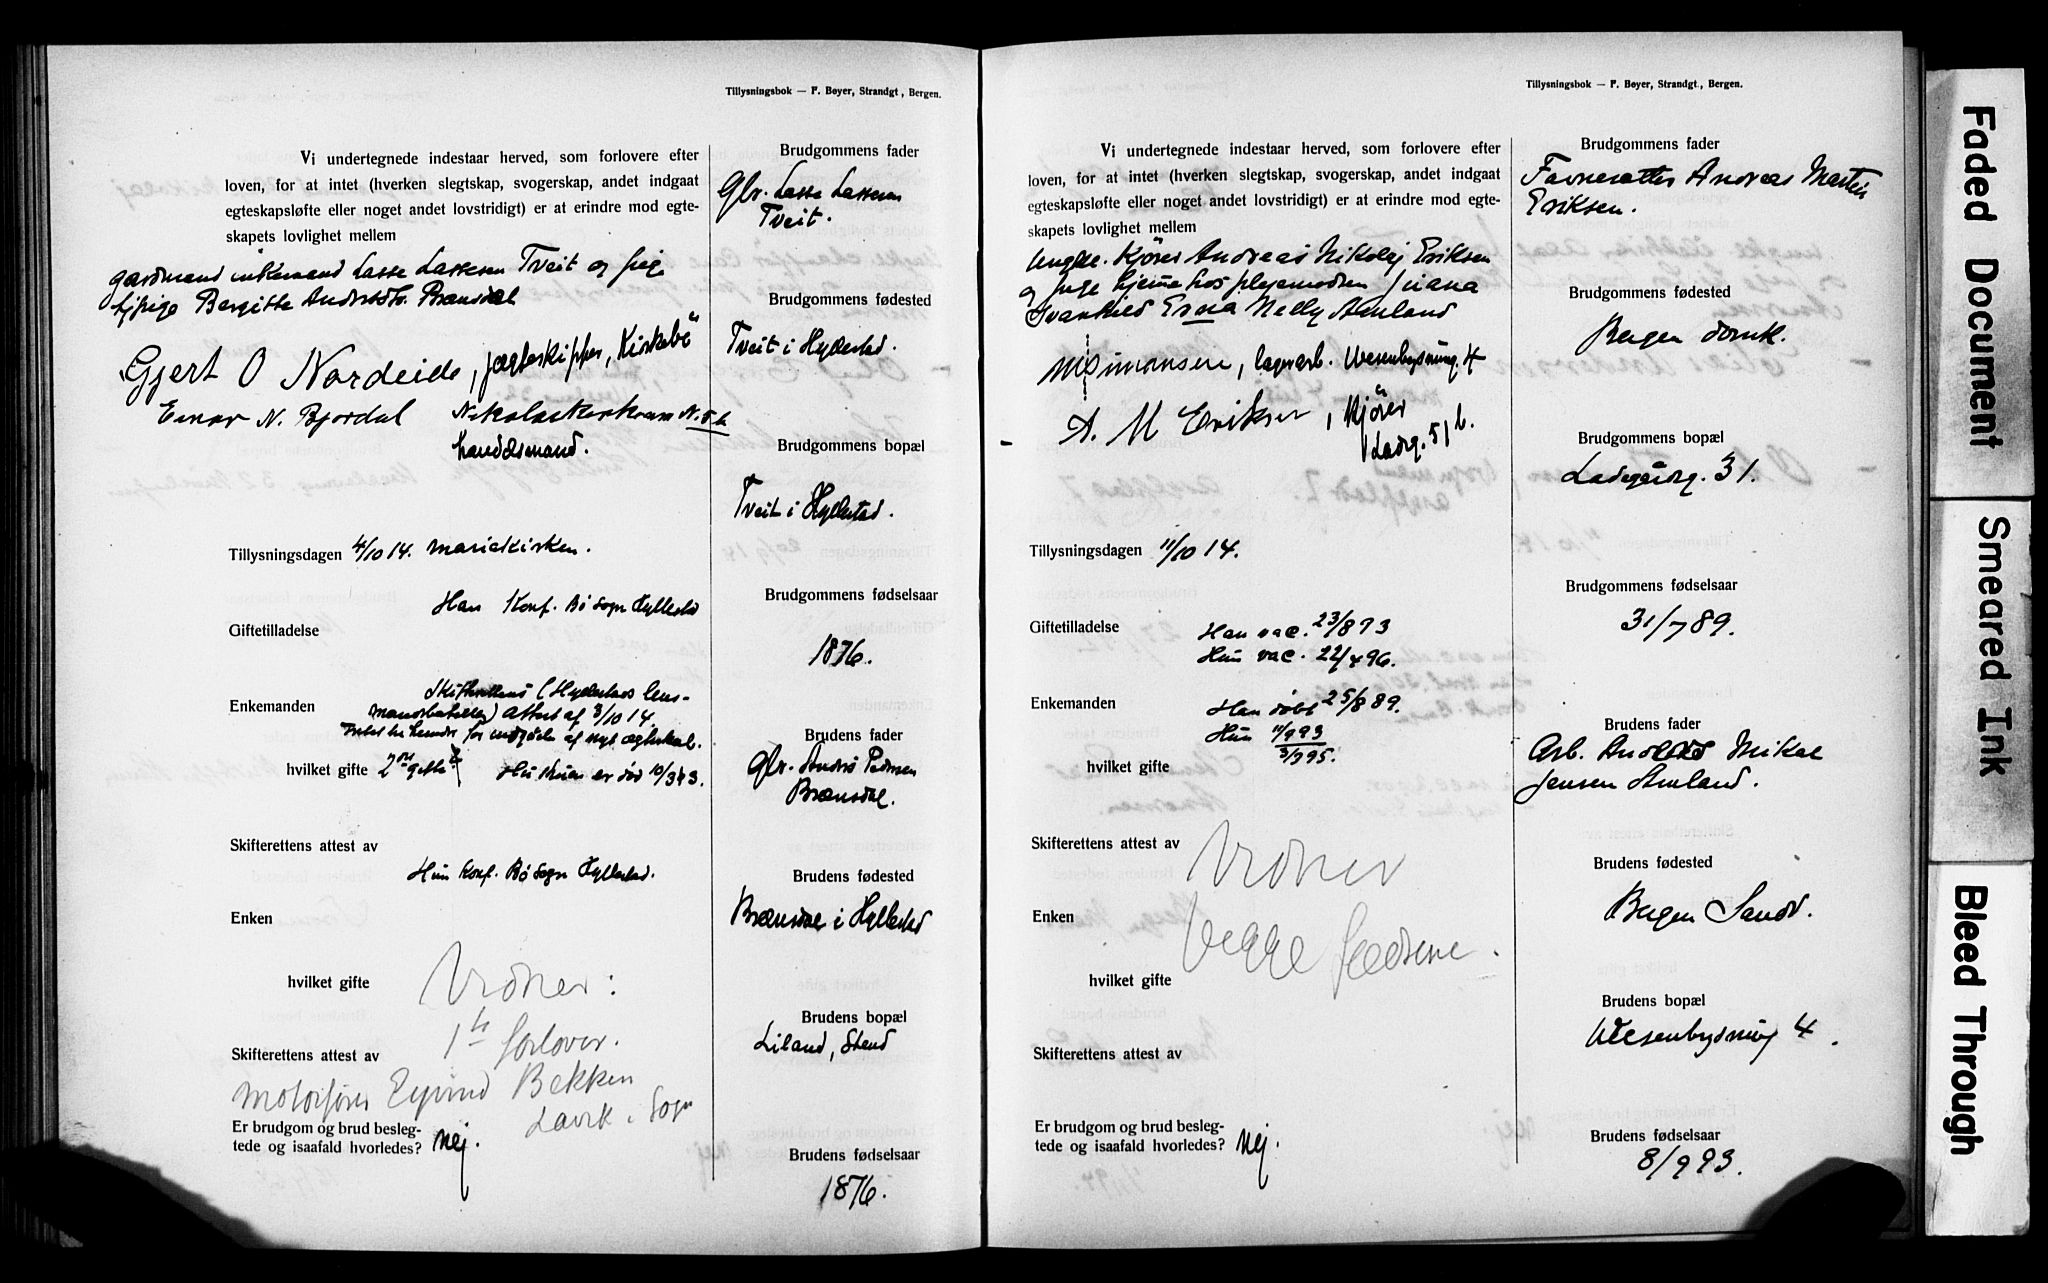 Tillysningsbok — F. Bøyer, Strandgt., Bergen.
Vi undertegnede indestaar herved, som forlovere efter
loven, for at intet (hverken slegtskap, svogerskap, andet indgaat
egteskapsløfte eller noget andet lovstridigt) er at erindre mod egte-
skapets lovlighet mellem
gardmand enkemand Lasse Lassesen Tveit og pige
Bergitte Andersdtr. Brænsdal
Gjert O Nordeide, jagteskipper, Kirkebö
Einar N. Bjordal Nikolaikirkealm. N. 5 b
handelsmand.
Tillysningsdagen 4/10 14. Mariekirken.
Han Konf. Bö Sogn Hyllestad
Giftetilladelse
Skifterettens (Hyllestads lens-
mandsbestilling) attest af 3/10 14
Intet til hinder for indgaaelse af nyt ægteskab.
Enkemanden
hvilket gifte 2det gifte Hustruen er död 10/3 13.
Skifterettens attest av
Hun Konf. Bö Sogn Hyllestad.
Enken
hvilket gifte
Vidner:
1ste forlover.
Skifterettens attest av
Motorfører Eyvind Bekken
Lavik i Sogn
Er brudgom og brud besleg-
tede og isaafald hvorledes? Nej.
Brudgommens fader
Gbr. Lasse Lassesen
Tveit.
Brudgommens fødested
Tveit i Hyllestad.
Brudgommens bopæl
Tveit i Hyllestad.
Brudgommens fødselsaar
1876.
Brudens fader
Gbr. Andrs Pedersen
Brænsdal.
Brudens fødested
Brænsdal i Hyllestad
Brudens bopæl
Liland, Stend
Brudens fødselsaar
1876.
Tillysningsbok — F. Bøyer, Strandgt., Bergen.
Vi undertegnede indestaar herved, som forlovere efter
loven, for at intet (hverken slegtskap, svogerskap, andet indgaat
egteskapsløfte eller noget andet lovstridigt) er at erindre mod egte-
skapets lovlighet mellem
Ungk. Kjörer Andreas Nikolaj Eriksen
og pige hjemme hos plejemodren Juana
Svanhild Erna Nelly Amland
M Simonsen, lagerarb. Wesenbysmug. 4
A. M Eriksen, Kjörer
Ladeg. 51 b.
Tillysningsdagen 11/10 14.
Giftetilladelse Han vac. 23/8 93
Hun vac. 22/4 96.
Enkemanden Han döbt 25/8 89.
Hun 11/9 93
3/7 95.
hvilket gifte
Skifterettens attest av
Vidner
Enken
Begge fædrene.
hvilket gifte
Skifterettens attest av
Er brudgom og brud besleg-
tede og isaafald hvorledes? Nej.
Brudgommens fader
Favnesætter Andreas Martin
Eriksen.
Brudgommens fødested
Bergen Domk.
Brudgommens bopæl
Ladegårdsg. 31.
Brudgommens fødselsaar
31/7 89.
Brudens fader
Arb. Andreas Mikal
Jensen Amland.
Brudens fødested
Bergen Sandv.
Brudens bopæl
Wesenbysmug 4.
Brudens fødselsaar
8/9 93.
Faded Document
Smeared Ink
Bleed Through